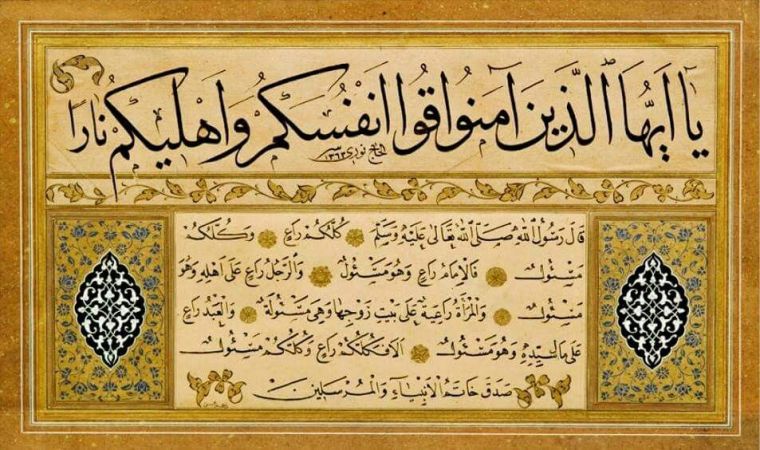 يَا اَيُّهَا الَّذِينَ اٰمَنُوا قُوا اَنْفُسَكُمْ وَاَهْلِيكُمْ نَارًا
الحاج نوري سنه ١٣٦٣
قَالَ رَسُولُ اللهِ صَلَّى اللهُ تَعَالٰى عَلَيْهِ وَسَلَّمَ كُلُّكُمْ رَاعٍ وَكُلُّكُمْ
مَسْئُولٌ فَالْاِمَامُ رَاعٍ وَهُوَ مَسْئُولٌ وَالرَّجُلُ رَاعٍ عَلٰى اَهْلِهِ وَهُوَ
مَسْئُولٌ وَالْمَرْأَةُ رَاعِيَةٌ عَلٰى بَيْتِ زَوْجِهَا وَهِيَ مَسْئُولَةٌ وَالْعَبْدُ رَاعٍ
عَلٰى مَالِ سَيِّدِهِ وَهُوَ مَسْئُولٌ اَلَا فَكُلُّكُمْ رَاعٍ وَكُلُّكُمْ مَسْئُولٌ
صَدَقَ خَاتَمُ الْاَنْبِيَاءِ وَالْمُرْسَلِينَ